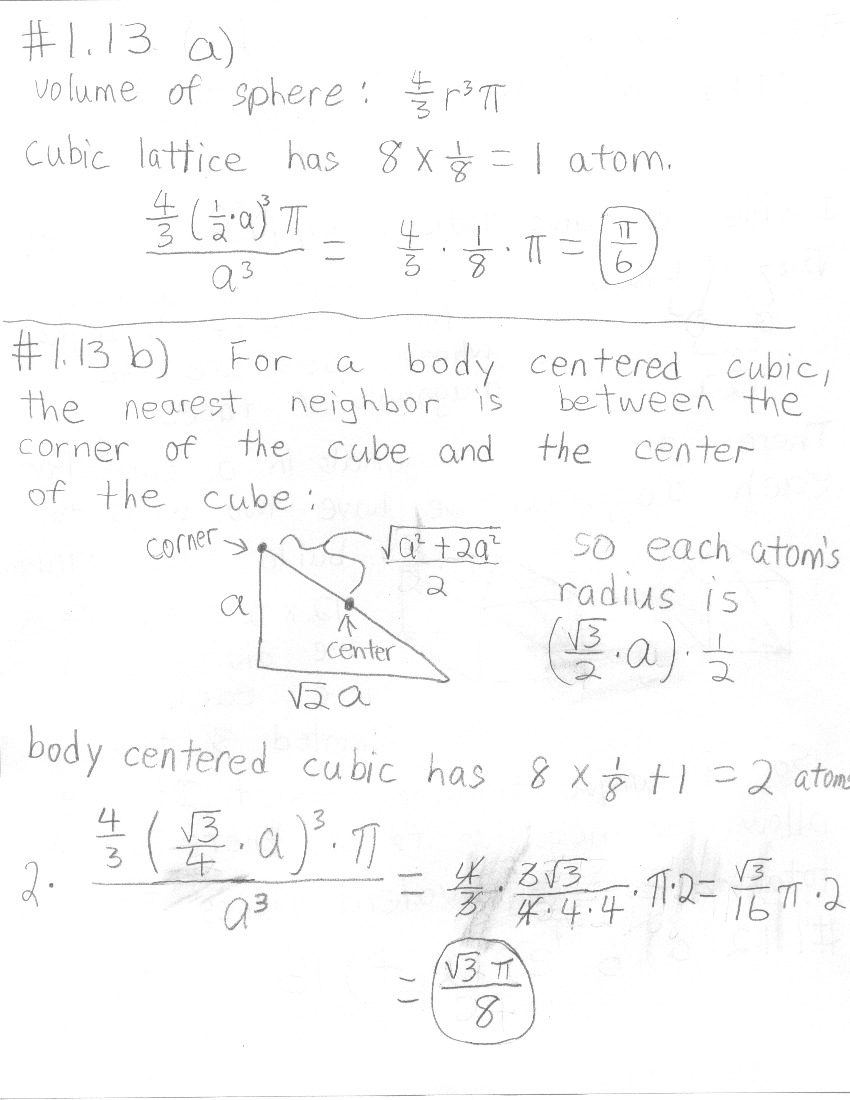 #1.13 a)
volume of sphere: 4/3 r³π
cubic lattice has 8 × 1/8 = 1 atom.
(4/3 (1/2 · a)³ π) / a³ = 4/3 · 1/8 · π = π/6
#1.13 b) For a body centered cubic,
the nearest neighbor is between the
corner of the cube and the center
of the cube:
corner → √(a² + 2a²) / 2
a
↑
center
√2 a
so each atom's
radius is
(√3/2 · a) · 1/2
body centered cubic has 8 × 1/8 + 1 = 2 atoms
2 · (4/3 (√3/4 · a)³ · π) / a³ = 4/3 · 3√3/(4·4·4) · π·2 = √3/16 π · 2
= √3 π / 8